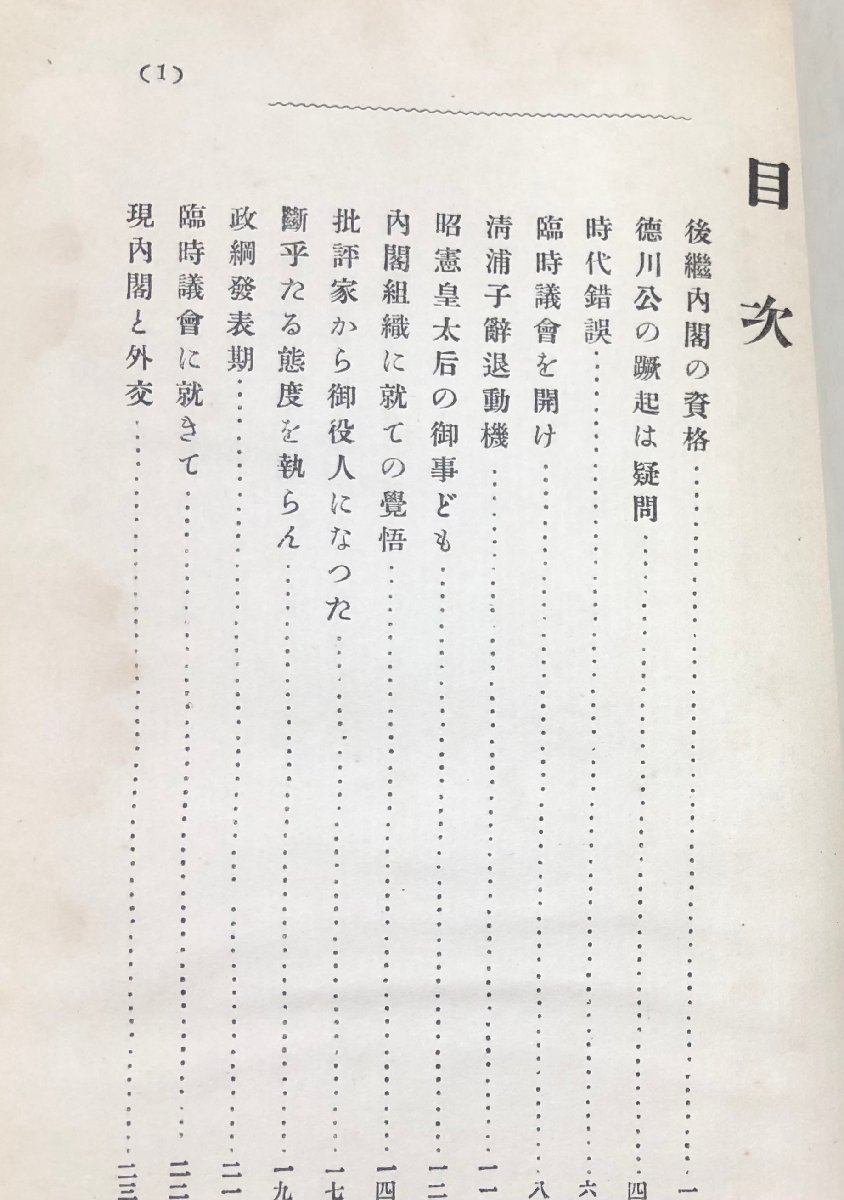 (1)
目次
後繼内閣の資格……一
德川公の蹶起は疑問……四
時代錯誤……六
臨時議會を開け……八
淸浦子辭退動機……一一
昭憲皇太后の御事ども……一二
内閣組織に就ての覺悟……一四
批評家から御役人になつた……一七
斷乎たる態度を執らん……一九
政綱發表期……二一
臨時議會に就きて……二二
現内閣と外交……二三